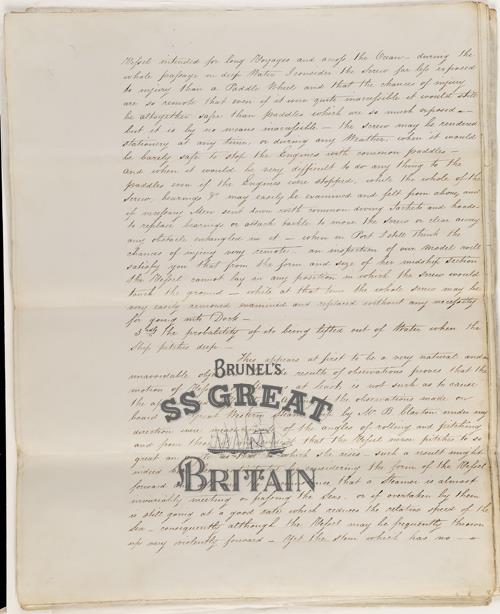 Vessel intended for long Voyages and across the Ocean – during the
whole passage in deep Water I consider the Screw far less exposed
to injury than a Paddle Wheel and that the chances of injury
are so remote that even if it were quite inaccessible it would still
be altogether safer than paddles which are so much exposed –
but it is by no means inaccessible – the Screw may be rendered
stationary at any time, or during any Weather, when it would
be barely safe to stop the Engines with common paddles –
and when it would be very difficult to do any thing to the
paddles even if the Engines were stopped, while the whole of the
Screw, bearings &c may easily be examined and felt from above, and
if necessary Men sent down with common diving Jackets and hoods
to replace bearings or attach tackle to move the Screw or clear away
any obstacle entangled in it – when in Port I still think the
chances of injury very remote – an inspection of our Model will
satisfy you that from the form and size of her midship Section
the Vessel cannot lay in any position in which the Screw would
touch the ground – while at that time the whole Screw may be
very easily removed examined and replaced without any necessity
for going into Dock –
3rdly the probability of its being lifted out of Water when the
Ship pitches deep –
This appears at first to be a very natural and
unavoidable results of observations proves that the
motion of at least, is not such as to cause
the the observations made on
board Western by Mr B. Claxton under my
direction were of the angles of rolling and pitching
and from that the Vessel never pitches to so
great an which she rises – such a result might
indeed considering the form of the Vessel
forward that a Steamer is almost
invariably meeting or passing the Seas, or if overtaken by them
is still going at a good rate which reduces the relative speed of the
Sea – consequently although the Vessel may be frequently thrown
up very violently forward – yet the stern which has no –
BRUNEL'S
SS GREAT
BRITAIN